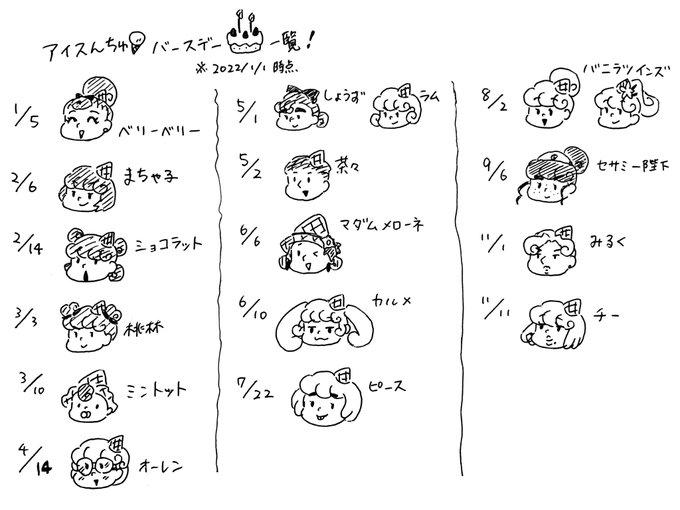 アイスんちゅ バースデー 一覧!
※2022/1/1 時点.
1/5 ベリーベリー
2/6 まちゃ子
2/14 ショコラット
3/3 桃林
3/10 ミントット
4/14 オーレン
5/1 しょうず ラム
5/2 茶々
6/6 マダムメローネ
6/10 カルメ
7/22 ピース
8/2 バニラツインズ
9/6 セサミー陛下
11/1 みるく
11/11 チー